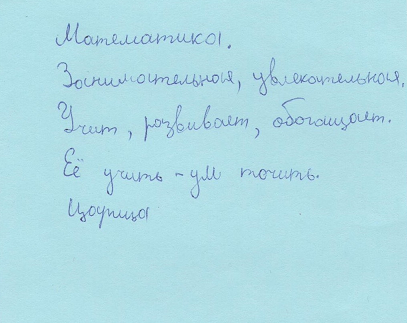 Математика.
Занимательная, увлекательная,
Учит, развивает, обогащает.
Её учить - ум точить.
Царица